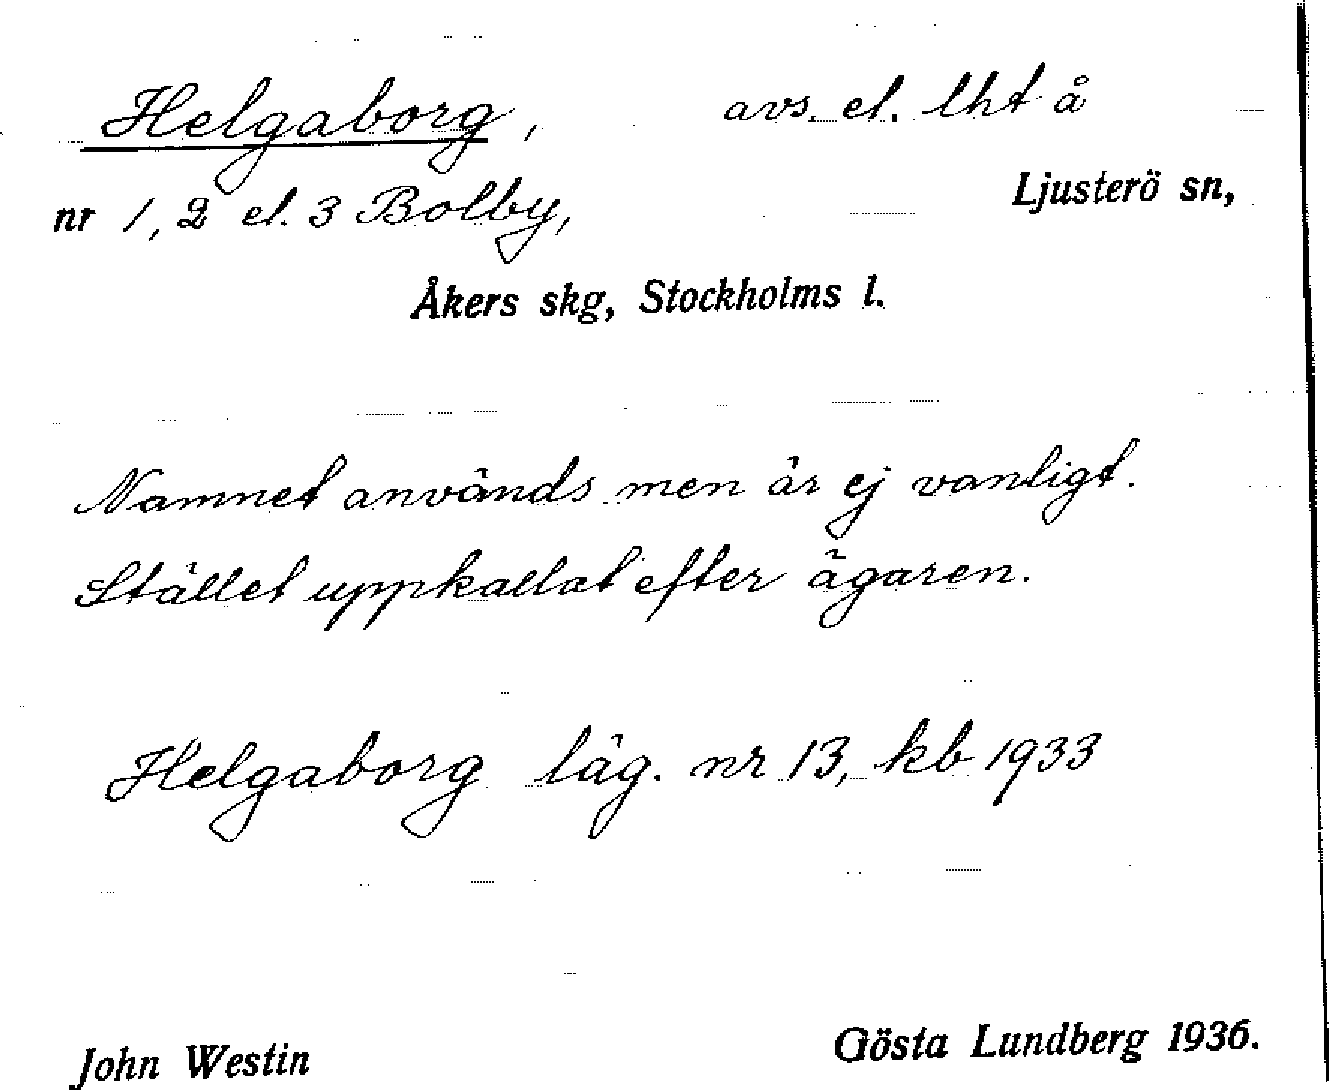 Helgaborg, avs. el. lht å
Ljusterö sn,
nr 1, 2 el. 3 Bolby,
Åkers skg, Stockholms l.
Namnet används men är ej vanligt.
Stället uppkallat efter ägaren.
Helgaborg läg. nr 13, kb 1933
John Westin Gösta Lundberg 1936.